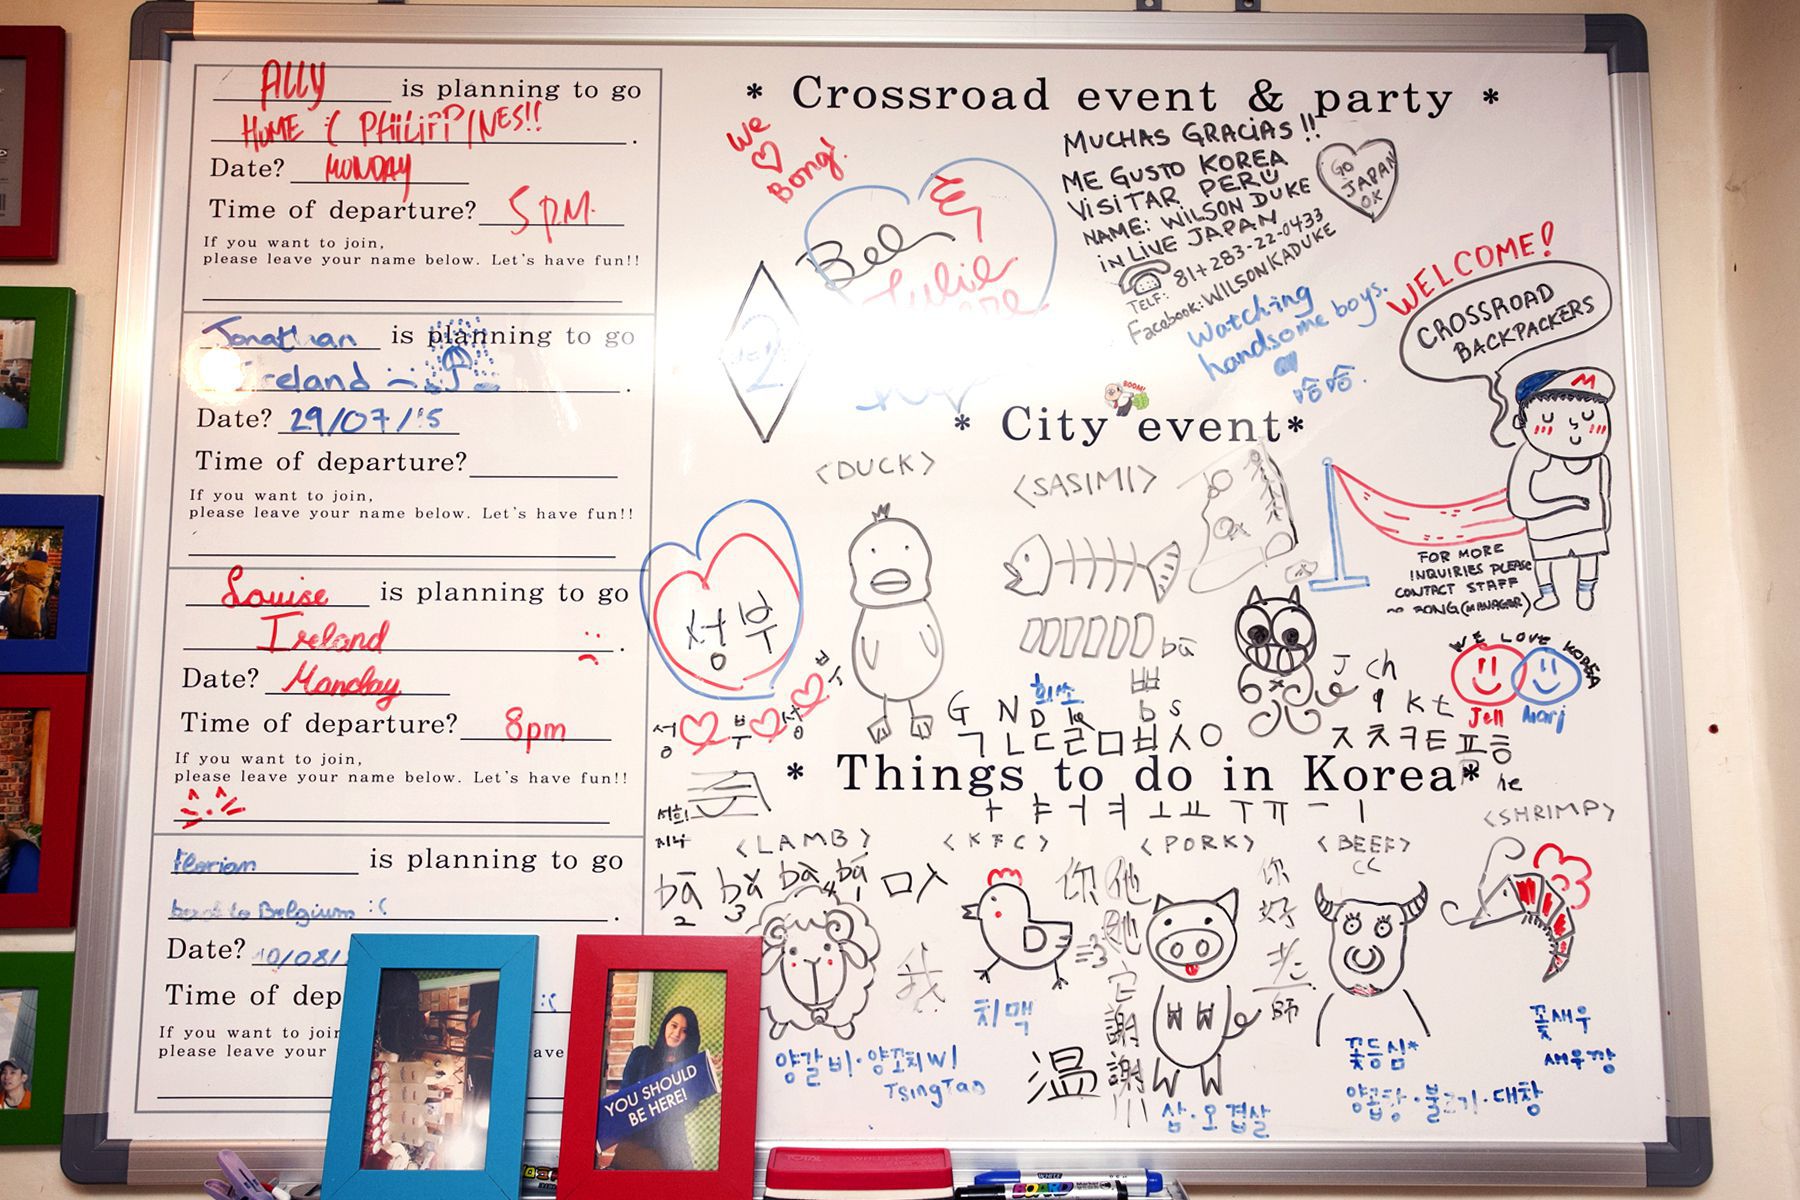 Ally is planning to go
HOME :( PHILIPPINES!! .
Date? MONDAY
Time of departure? 5 P.M.
If you want to join,
please leave your name below. Let's have fun!!
Jonathan is planning to go
Ireland .
Date? 29/07/15
Time of departure?
If you want to join,
please leave your name below. Let's have fun!!
Louise is planning to go
Ireland .
Date? Monday
Time of departure? 8pm
If you want to join,
please leave your name below. Let's have fun!!
Florian is planning to go
back to Belgium :( .
Date? 10/08/
Time of dep
If you want to join
please leave your ave
YOU SHOULD
BE HERE!
* Crossroad event & party *
We
Bong!
Bel
Julie
2
MUCHAS GRACIAS !!
ME GUSTO KOREA
VISITAR PERU
NAME: WILSON DUKE
IN LIVE JAPAN
TELF: 81+283-22-0433
Facebook: WILSONKADUKE
GO
JAPAN
OK
Watching
handsome boys.
哈哈.
WELCOME!
CROSSROAD
BACKPACKERS
M
BOOM!
* City event*
<DUCK>
<SASIMI>
성부
bā
FOR MORE
INQUIRIES PLEASE
CONTACT STAFF
BONG(MANAGER)
WE LOVE KOREA
Jell
Marj
성 부 성
G N D b s
J ch
k t
ㄱ ㄴ ㄷ ㄹ ㅁ ㅂ ㅅ ㅇ ㅈ ㅊ ㅋ ㅌ ㅍ ㅎ
he
* Things to do in Korea*
ㅏ ㅑ ㅓ ㅕ ㅗ ㅛ ㅜ ㅠ ㅡ ㅣ
서희
<LAMB>
<KFC>
<PORK>
<BEEF>
<SHRIMP>
bā bǎ bà bá
2 3 4 1
你 他
她
它
謝
謝
你
好
老
師
我
温
치맥
양갈비·양꼬치W/
TsingTao
삼·오겹살
꽃등심*
양곱창·불고기·대창
꽃새우
새우깡
WHITE
BOARD